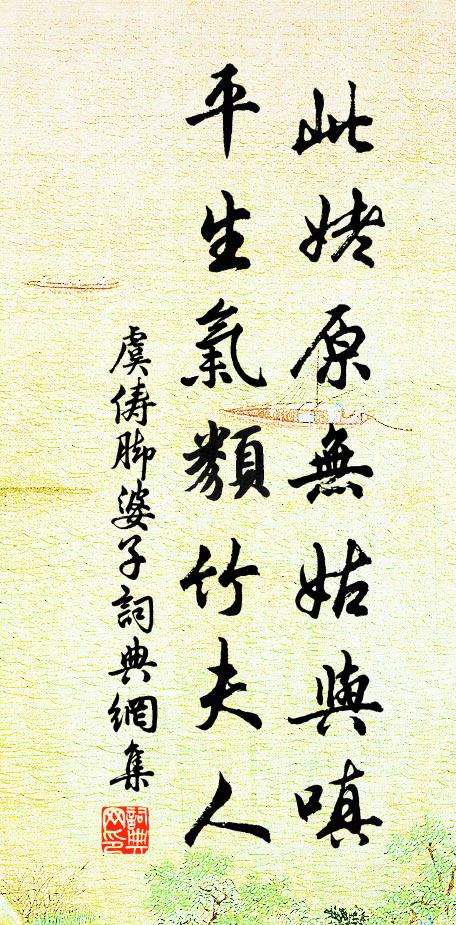 此姥原無姑與嗔
平生氣類竹夫人
虞儔脚婆子詞典網集
詞典網印